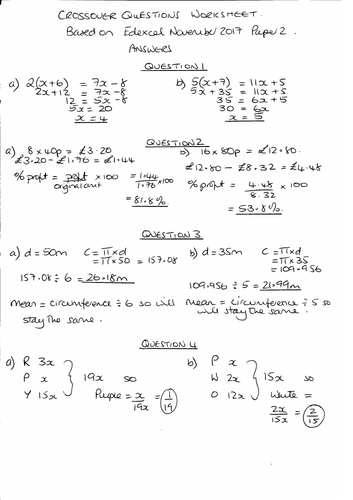 CROSSOVER QUESTIONS WORKSHEET.
Based on Edexcel November 2017 Paper 2.
ANSWERS
QUESTION 1
a) 2(x+6) = 7x-8
2x+12 = 7x-8
12 = 5x-8
5x = 20
x = 4
b) 5(x+7) = 11x+5
5x+35 = 11x+5
35 = 6x+5
30 = 6x
x = 5
QUESTION 2
a) 8 x 40p = £3.20
£3.20 - £1.76 = £1.44
% profit = profit/original amt x 100 = 1.44/1.76 x 100
= 81.8%
b) 16 x 80p = £12.80
£12.80 - £8.32 = £4.48
% profit = 4.48/8.32 x 100
= 53.8%
QUESTION 3
a) d = 50m C = π x d
= π x 50 = 157.08
157.08 ÷ 6 = 26.18m
Mean = circumference ÷ 6 so will
stay the same.
b) d = 35m C = π x d
= π x 35
= 109.956
109.956 ÷ 5 = 21.99m
Mean = circumference ÷ 5 so
will stay the same.
QUESTION 4
a) R 3x
P x
Y 15x
19x so
Purple = x/19x = 1/19
b) P x
W 2x
O 12x
15x so
White =
2x/15x = 2/15